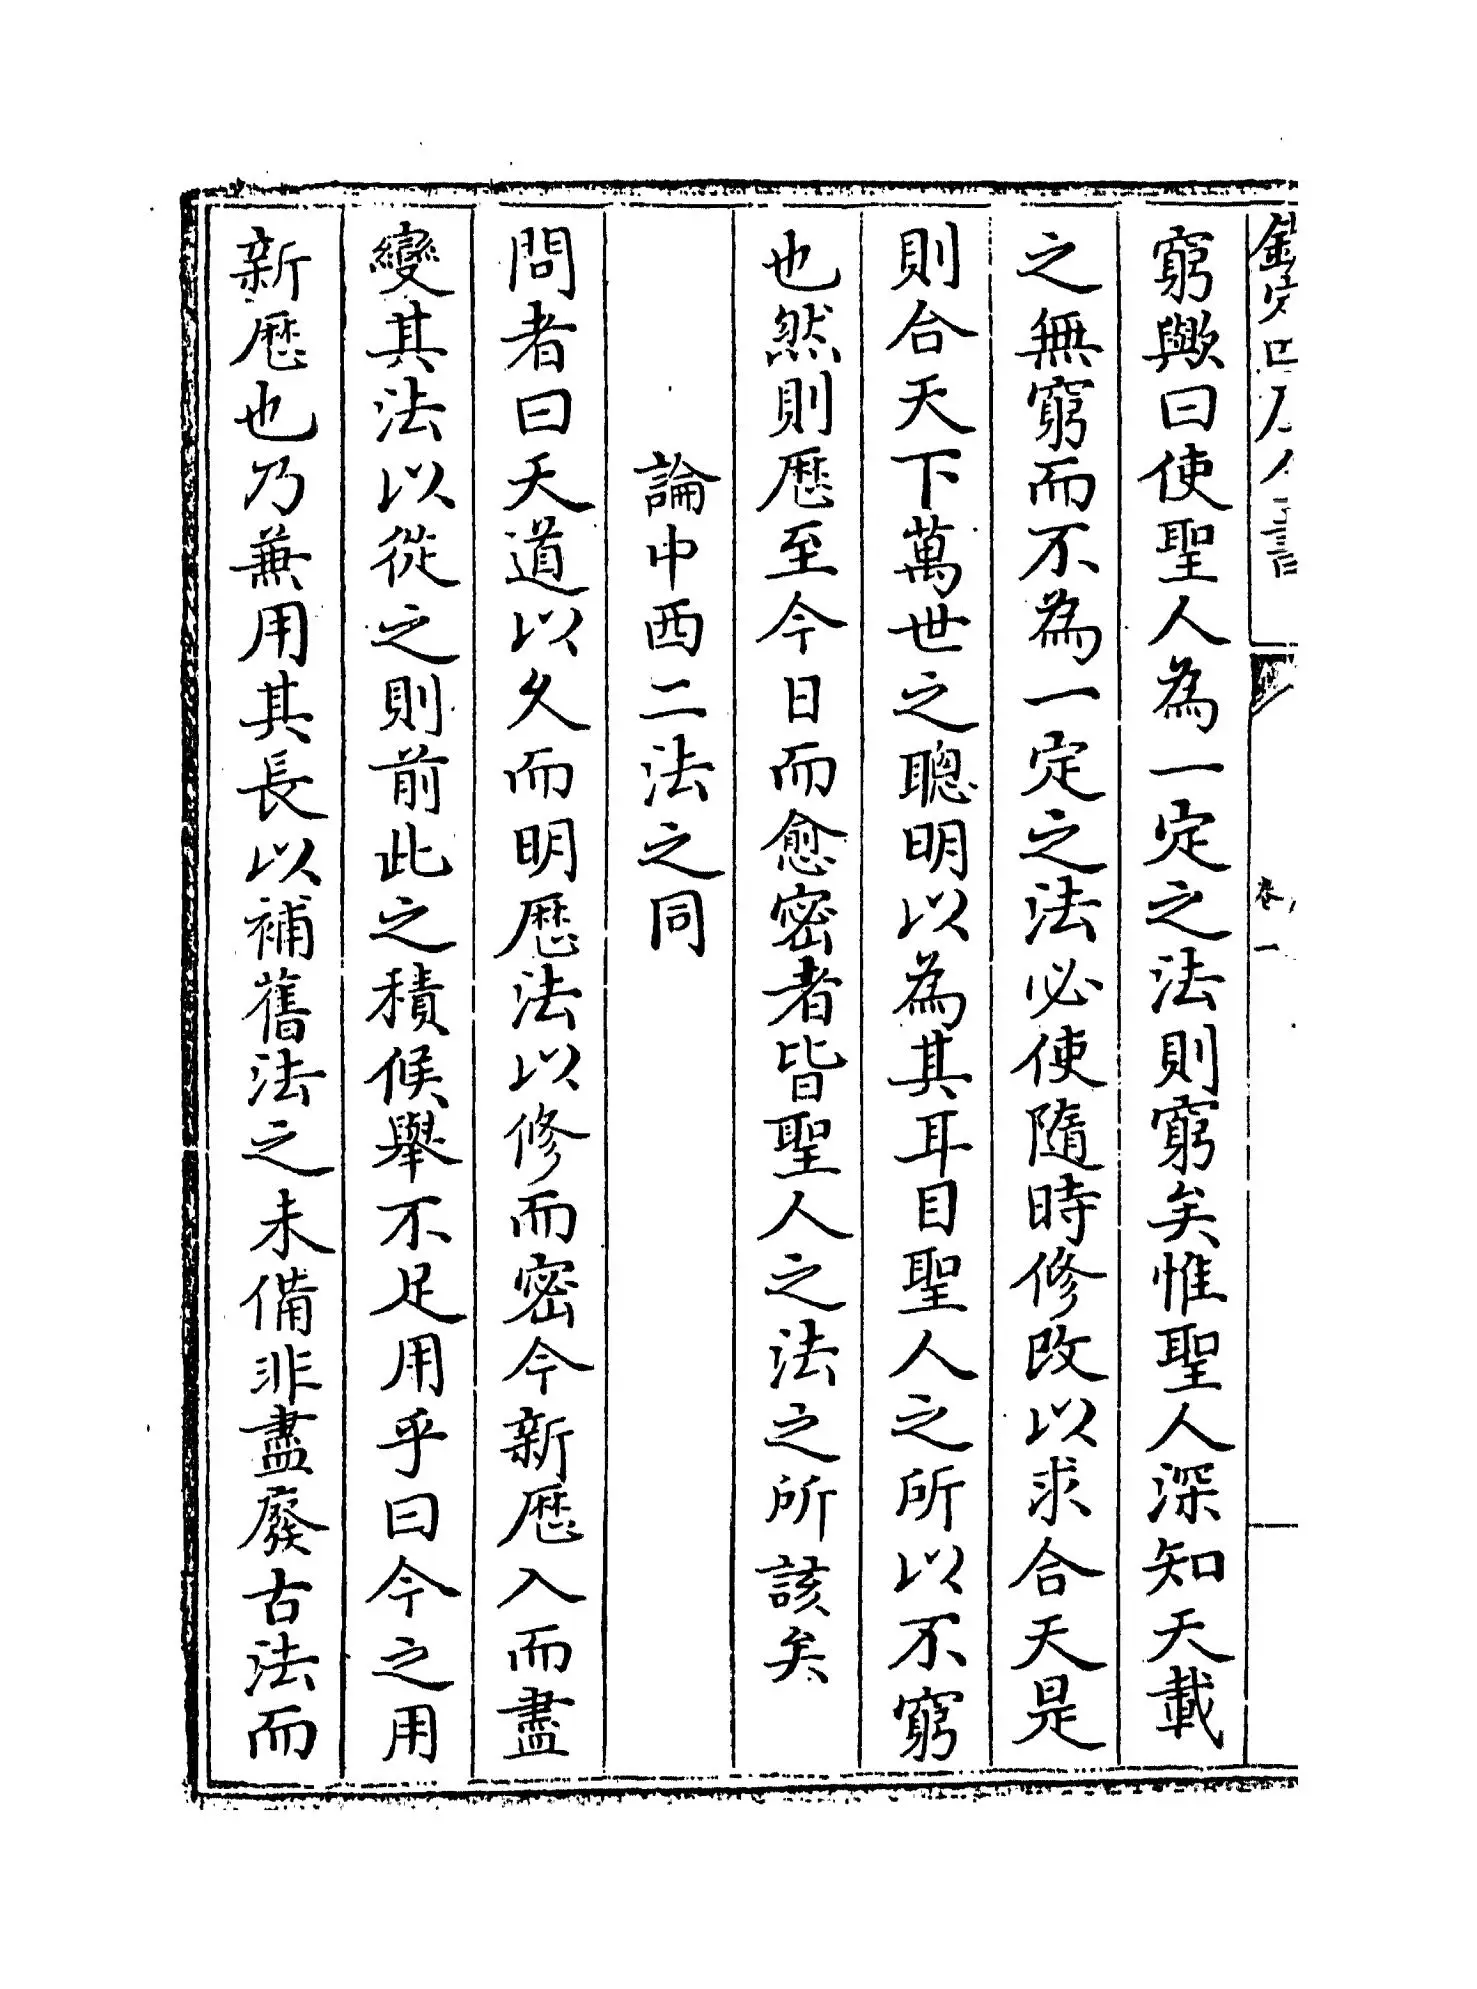 欽定四庫全書
卷一
窮歟曰使聖人為一定之法則窮矣惟聖人深知天載
之無窮而不為一定之法必使隨時修改以求合天是
則合天下萬世之聰明以為其耳目聖人之所以不窮
也然則厯至今日而愈密者皆聖人之法之所該矣
論中西二法之同
問者曰天道以久而明厯法以修而密今新厯入而盡
變其法以從之則前此之積候舉不足用乎曰今之用
新厯也乃兼用其長以補舊法之未備非盡廢古法而